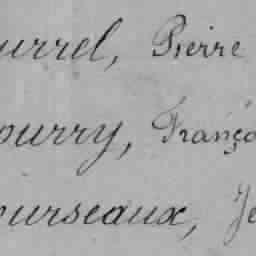 urrel, Pierre
ourry, Franço
ourseaux, Je